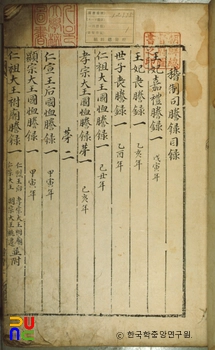 稧制司謄錄目錄
王妃嘉禮謄錄一 戊寅年
王妃喪謄錄一 乙亥年
世子喪謄錄一 乙酉年
仁祖大王國恤謄錄一 己丑年
孝宗大王國恤謄錄第一 己亥年
第二
仁宣王后國恤謄錄一 甲寅年
顯宗大王國恤謄錄一 甲寅年
仁祖大王祔廟謄錄一
©한국학중앙연구원